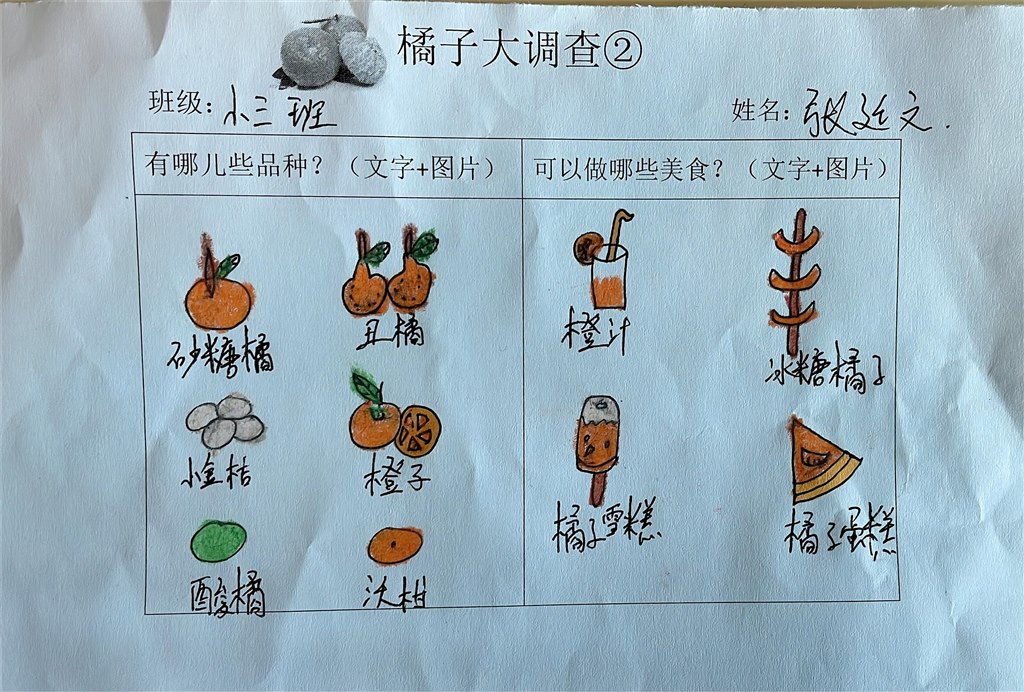 橘子大调查②
班级：小三班
姓名：张廷文.
有哪几些品种？（文字+图片）
可以做哪些美食？（文字+图片）
砂糖橘
丑橘
橙汁
冰糖橘子
小金桔
橙子
橘子雪糕
橘子蛋糕
酸橘
沃柑